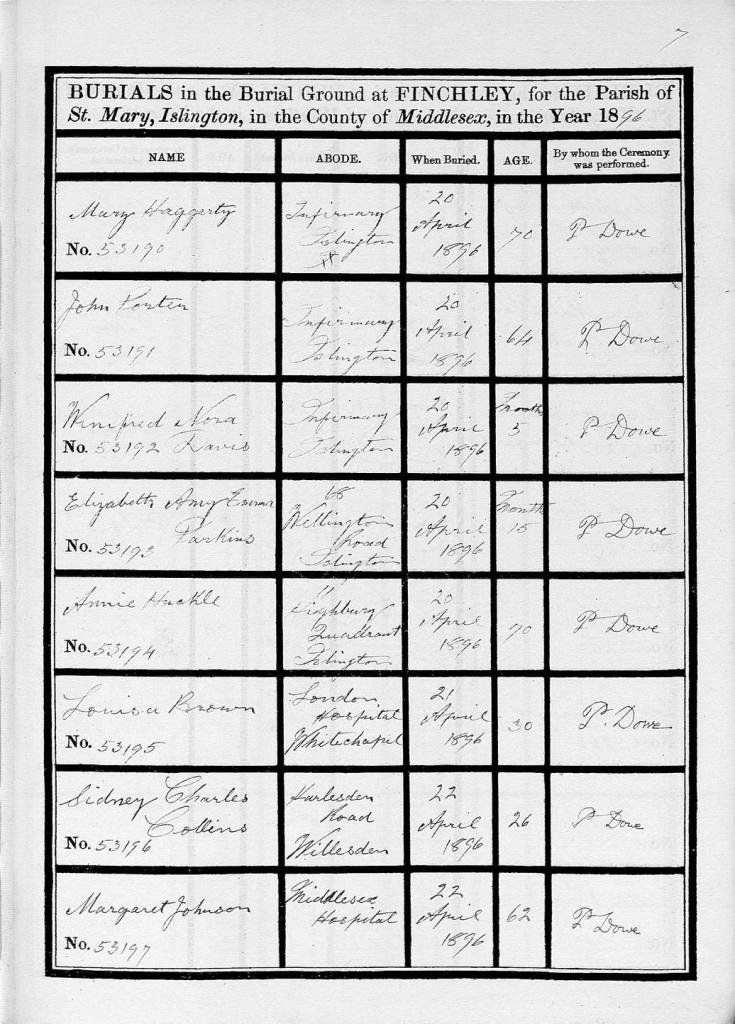 7
BURIALS in the Burial Ground at FINCHLEY, for the Parish of
St. Mary, Islington, in the County of Middlesex, in the Year 1896
NAME ABODE. When Buried. AGE. By whom the Ceremony was performed.
Mary Haggerty
No. 53190
Infirmary
Islington
20
April
1896
70
P Dowe
John
No. 53191
Infirmary
Islington
20
April
1896
64
P Dowe
Winifred Nora
No. 53192 Davis
Infirmary
Islington
20
April
1896
month
5
P Dowe
Elizabeth Amy Emma
Parkins
No. 53193
68
Wellington
Road
Islington
20
April
1896
month
15
P Dowe
Annie Huckle
No. 53194
11
Highbury
Quadrant
Islington
20
April
1896
70
P Dowe
Louisa Brown
No. 53195
London
Hospital
Whitechapel
21
April
1896
30
P. Dowe
Sidney Charles
Collins
No. 53196
Harlesden
Road
Willesden
22
April
1896
26
P Dowe
Margaret Johnson
No. 53197
Middlesex
Hospital
22
April
1896
62
P Dowe